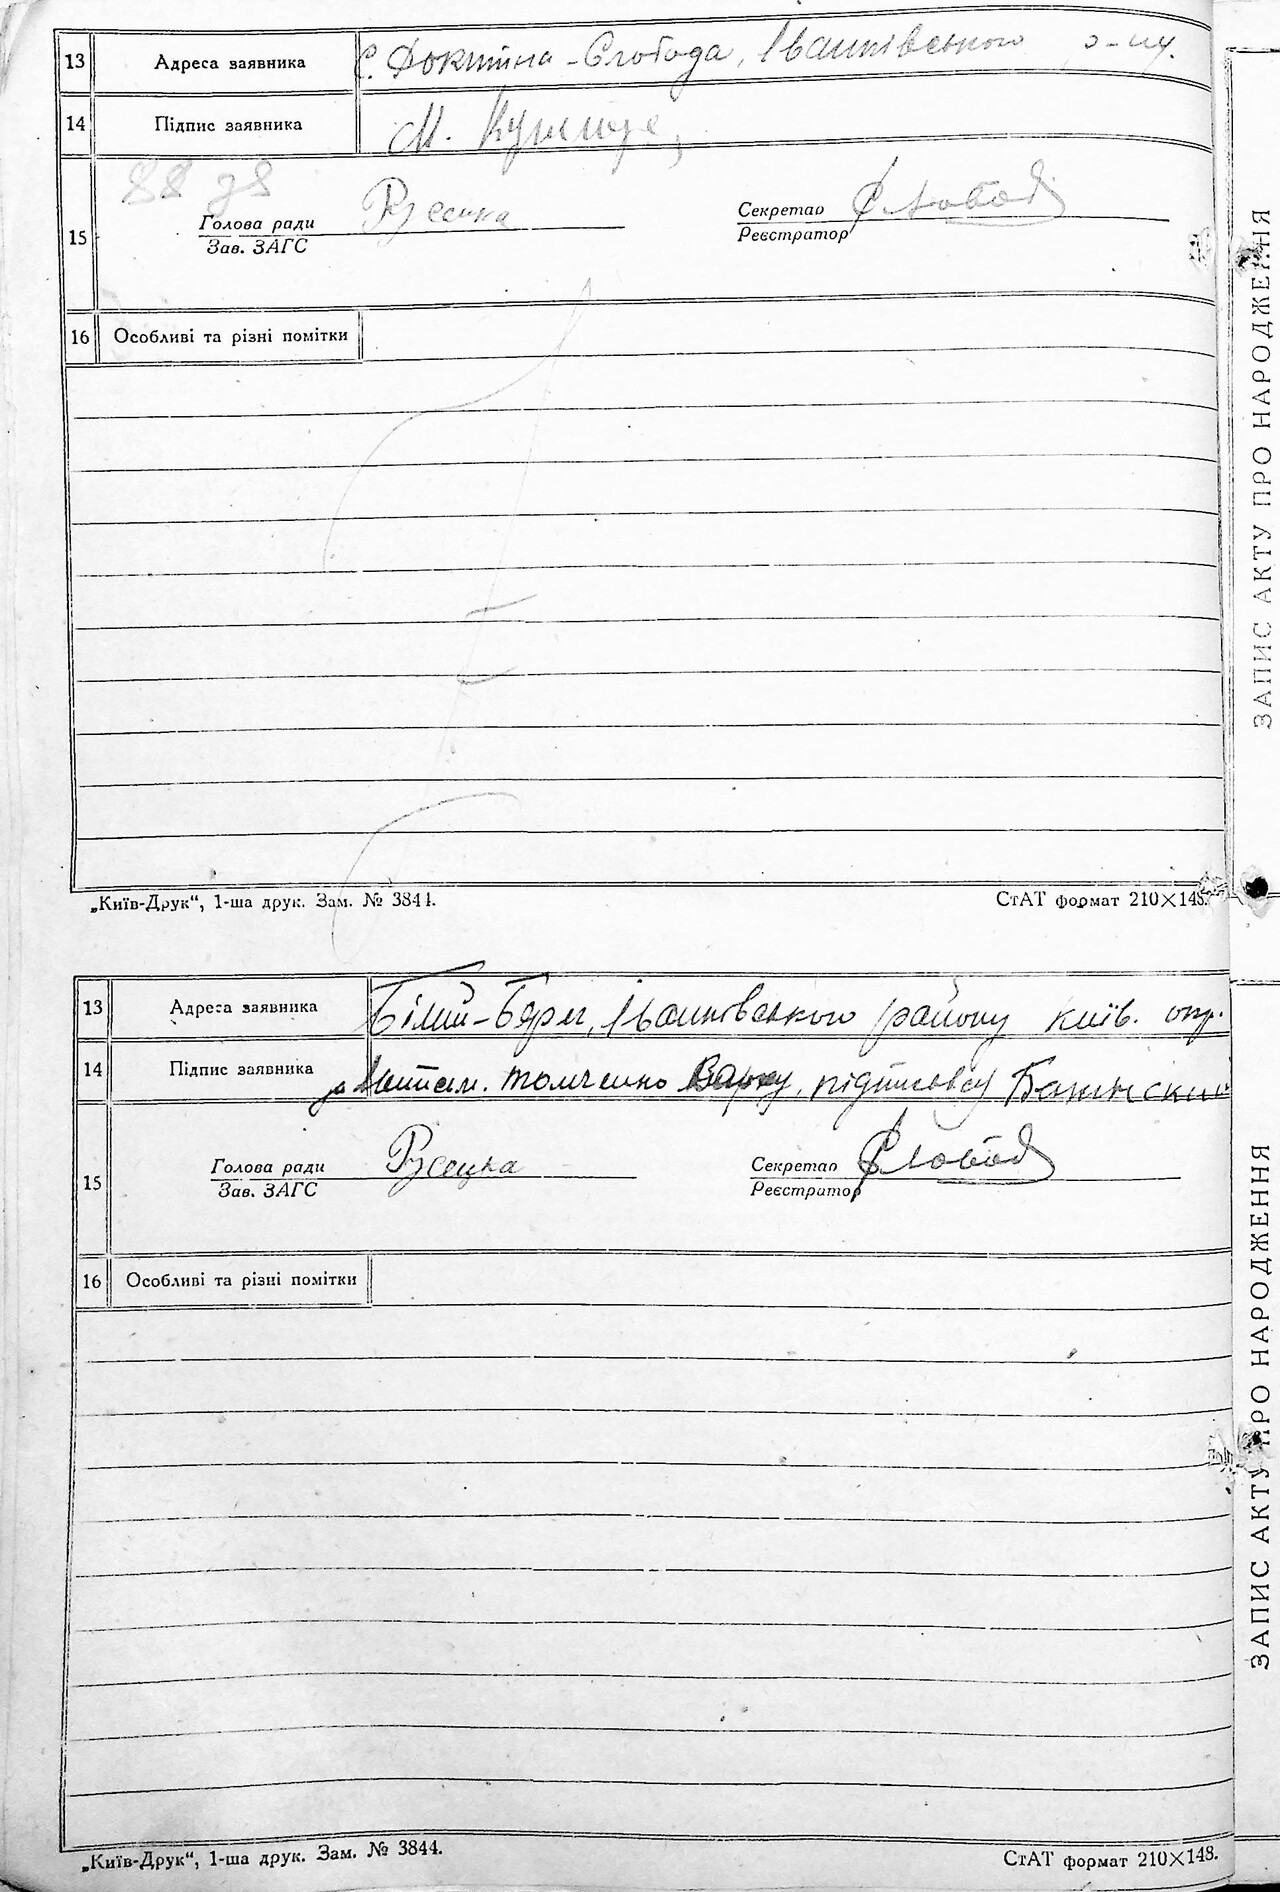 13 Адреса заявника с. Фоктіна-Слобода, Іванківського р-ну.
14 Підпис заявника М.
15 Голова ради Русецка Секретар Слобод
Зав. ЗАГС Реєстратор
16 Особливі та різні помітки
„Київ-Друк“, 1-ша друк. Зам. № 3844. СтАТ формат 210×148.
13 Адреса заявника Білий-Берег, Іванківського району Київ. окр.
14 Підпис заявника за Томченко Варку, підписався
15 Голова ради Русецка Секретар Слобод
Зав. ЗАГС Реєстратор
16 Особливі та різні помітки
„Київ-Друк“, 1-ша друк. Зам. № 3844. СтАТ формат 210×148.
ЗАПИС АКТУ ПРО НАРОДЖЕННЯ
ЗАПИС АКТУ ПРО НАРОДЖЕННЯ